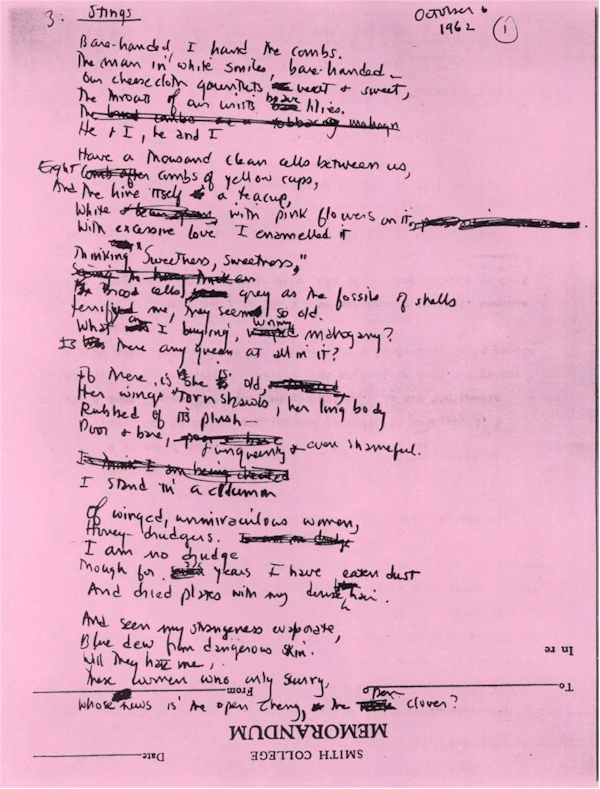 3. Stings
October 6
1962
1
Bare-handed, I hand the combs.
The man in white smiles, bare-handed—
Our cheesecloth gauntlets neat + sweet,
The throats of our wrists brave lilies.
He + I, he and I
Have a thousand clean cells between us,
Eight combs of yellow cups,
And the hive itself a teacup,
White with pink flowers on it,
With excessive love I enamelled it
Thinking "Sweetness, sweetness,"
Brood cells, grey as the fossils of shells
Terrify me, they seem so old.
What am I buying, wormy mahogany?
Is there any queen at all in it?
If there is, she is old,
Her wings torn shawls, her long body
Rubbed of its plush—
Poor + bare, + unqueenly + even shameful.
I think I am being cheated
I stand in a column
Of winged, unmiraculous women,
Honey-drudgers.
I am no drudge
Though for years I have eaten dust
And dried plates with my dense hair.
And seen my strangeness evaporate,
Blue dew from dangerous skin.
Will they hate me,
These women who only scurry,
Whose news is the open cherry, the open clover?
In re
To
From
MEMORANDUM
SMITH COLLEGE
Date